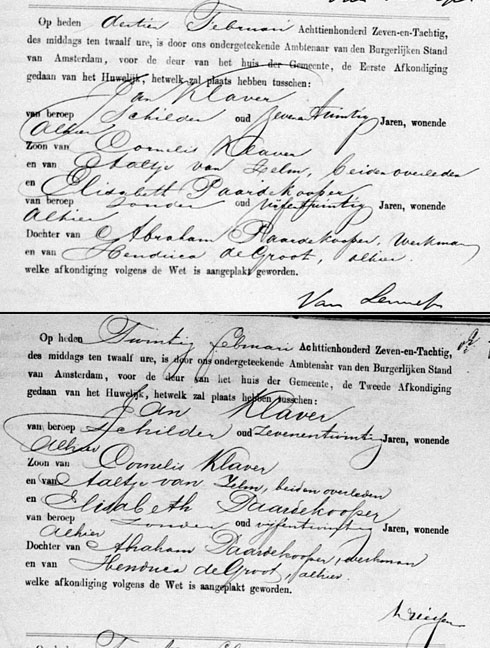 Op heden dertien Februari Achttienhonderd Zeven-en-Tachtig,
des middags ten twaalf ure, is door ons ondergeteekende Ambtenaar van den Burgerlijken Stand
van Amsterdam, voor de deur van het huis der Gemeente, de Eerste Afkondiging
gedaan van het Huwelijk, hetwelk zal plaats hebben tusschen:
Jan Klaver
van beroep Schilder oud zevenentwintig Jaren, wonende
alhier
Zoon van Cornelis Klaver
en van Aaltje van Zelm, beiden overleden
en Elisabeth Paardekooper
van beroep zonder oud vijfentwintig Jaren, wonende
alhier
Dochter van Abraham Paardekooper, werkman
en van Hendrica de Groot, alhier.
welke afkondiging volgens de Wet is aangeplakt geworden.
Van Lennep
Op heden Twintig februari Achttienhonderd Zeven-en-Tachtig,
des middags ten twaalf ure, is door ons ondergeteekende Ambtenaar van den Burgerlijken Stand
van Amsterdam, voor de deur van het huis der Gemeente, de Tweede Afkondiging
gedaan van het Huwelijk, hetwelk zal plaats hebben tusschen:
Jan Klaver
van beroep Schilder oud zevenentwintig Jaren, wonende
alhier
Zoon van Cornelis Klaver
en van Aaltje van Zelm, beiden overleden
en Elisabeth Paardekooper
van beroep zonder oud vijfentwintig Jaren, wonende
alhier
Dochter van Abraham Paardekooper, werkman
en van Hendrica de Groot, alhier.
welke afkondiging volgens de Wet is aangeplakt geworden.